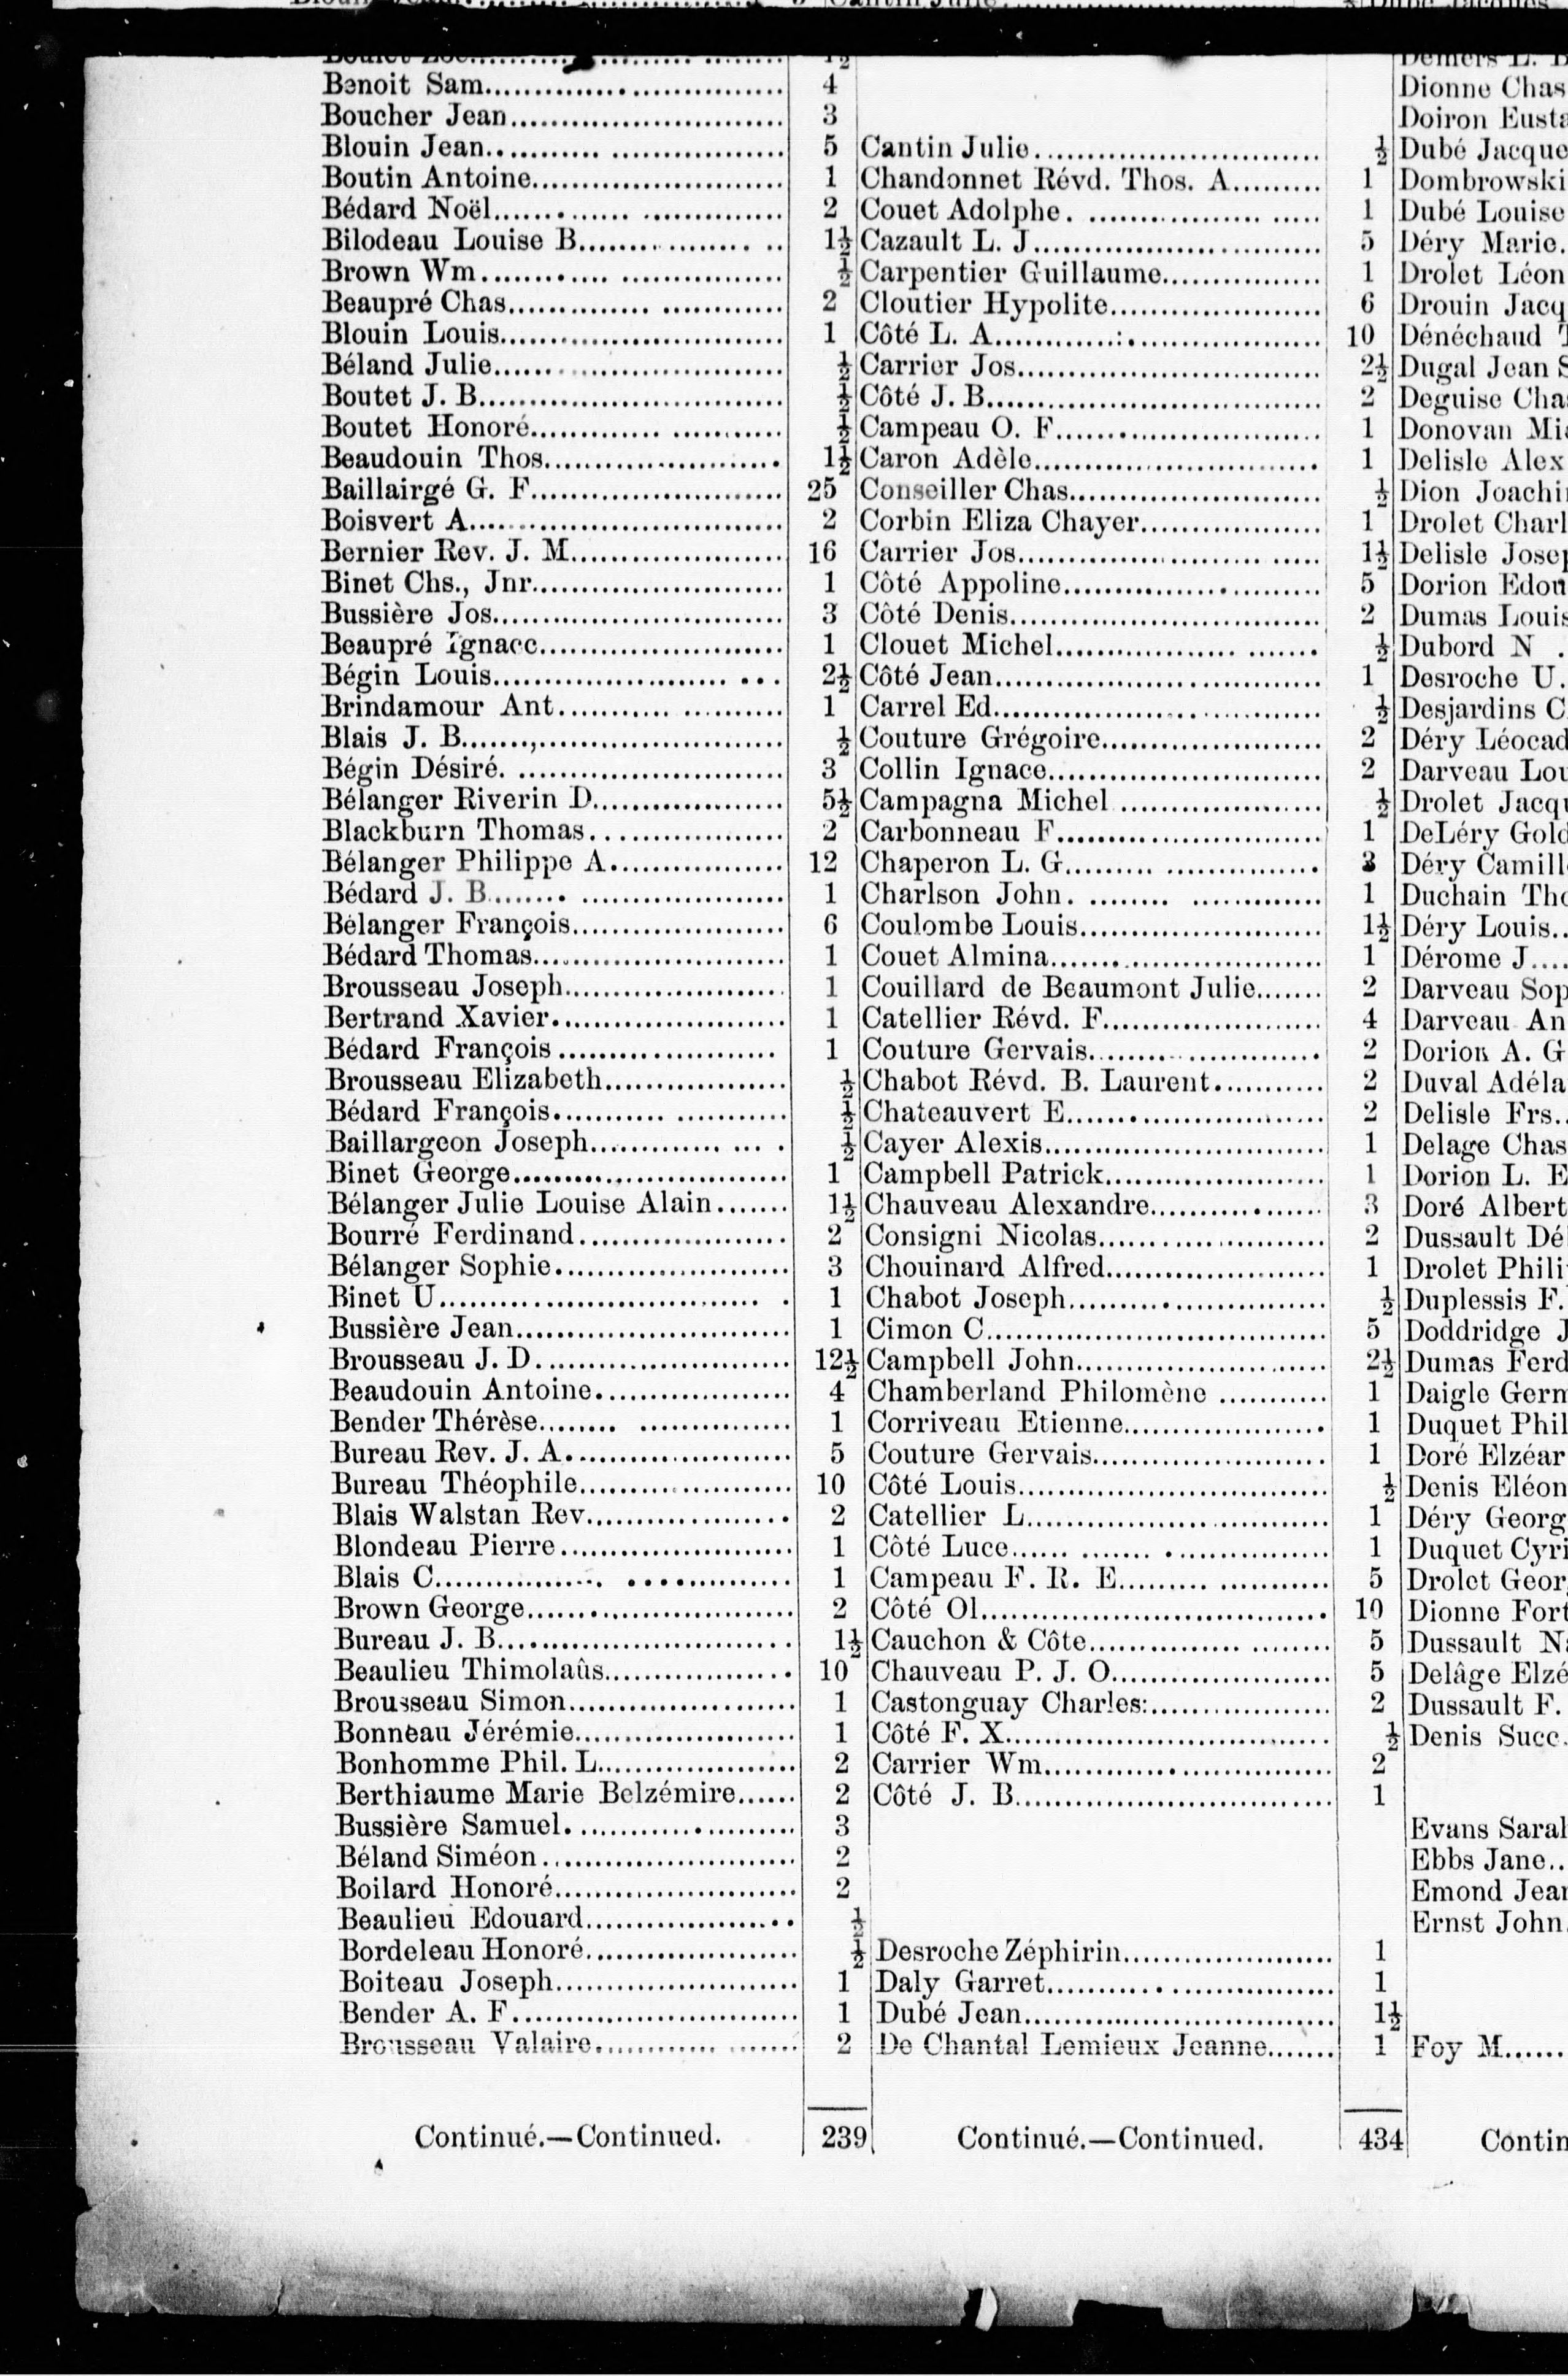 Benoit Sam 4
Boucher Jean 3
Blouin Jean 5
Boutin Antoine 1
Bédard Noël 2
Bilodeau Louise B 1½
Brown Wm ½
Beaupré Chas 2
Blouin Louis 1
Béland Julie ½
Boutet J. B ½
Boutet Honoré ½
Beaudouin Thos 1½
Baillairgé G. F 25
Boisvert A 2
Bernier Rev. J. M 16
Binet Chs., Jnr 1
Bussière Jos 3
Beaupré Ignace 1
Bégin Louis 2½
Brindamour Ant 1
Blais J. B ½
Bégin Désiré 3
Bélanger Riverin D 5½
Blackburn Thomas 2
Bélanger Philippe A 12
Bédard J. B 1
Bélanger François 6
Bédard Thomas 1
Brousseau Joseph 1
Bertrand Xavier 1
Bédard François 1
Brousseau Elizabeth ½
Bédard François ½
Baillargeon Joseph ½
Binet George 1
Bélanger Julie Louise Alain 1½
Bourré Ferdinand 2
Bélanger Sophie 3
Binet U 1
Bussière Jean 1
Brousseau J. D 12½
Beaudouin Antoine 4
Bender Thérèse 1
Bureau Rev. J. A 5
Bureau Théophile 10
Blais Walstan Rev 2
Blondeau Pierre 1
Blais C 1
Brown George 2
Bureau J. B 1½
Beaulieu Thimolaûs 10
Brousseau Simon 1
Bonneau Jérémie 1
Bonhomme Phil. L 2
Berthiaume Marie Belzémire 2
Bussière Samuel 3
Béland Siméon 2
Boilard Honoré 2
Beaulieu Edouard ½
Bordeleau Honoré ½
Boiteau Joseph 1
Bender A. F 1
Brousseau Valaire 2
Continué.—Continued. 239
Cantin Julie ½
Chandonnet Révd. Thos. A 1
Couet Adolphe 1
Cazault L. J 5
Carpentier Guillaume 1
Cloutier Hypolite 6
Côté L. A 10
Carrier Jos 2½
Côté J. B 2
Campeau O. F 1
Caron Adèle 1
Conseiller Chas ½
Corbin Eliza Chayer 1
Carrier Jos 1½
Côté Appoline 5
Côté Denis 2
Clouet Michel ½
Côté Jean 1
Carrel Ed ½
Couture Grégoire 2
Collin Ignace 2
Campagna Michel ½
Carbonneau F 1
Chaperon L. G 3
Charlson John 1
Coulombe Louis 1½
Couet Almina 1
Couillard de Beaumont Julie 2
Catellier Révd. F 4
Couture Gervais 2
Chabot Révd. B. Laurent 2
Chateauvert E 2
Cayer Alexis 1
Campbell Patrick 1
Chauveau Alexandre 3
Consigni Nicolas 2
Chouinard Alfred 1
Chabot Joseph ½
Cimon C 5
Campbell John 2½
Chamberland Philomène 1
Corriveau Etienne 1
Couture Gervais 1
Côté Louis ½
Catellier L 1
Côté Luce 1
Campeau F. R. E 5
Côté Ol 10
Cauchon & Côte 5
Chauveau P. J. O 5
Castonguay Charles: 2
Côté F. X ½
Carrier Wm 2
Côté J. B 1
Desroche Zéphirin 1
Daly Garret 1
Dubé Jean 1½
De Chantal Lemieux Jeanne 1
Continué.—Continued. 434
Dionne Chas
Doiron Eusta
Dubé Jacque
Dombrowski
Dubé Louise
Déry Marie
Drolet Léon
Drouin Jacq
Dénéchaud
Dugal Jean S
Deguise Cha
Donovan Mi
Delisle Alex
Dion Joachi
Drolet Charl
Delisle Josep
Dorion Edou
Dumas Louis
Dubord N
Desroche U.
Desjardins C
Déry Léocad
Darveau Lou
Drolet Jacqu
DeLéry Gold
Déry Camill
Duchain Tho
Déry Louis
Dérome J
Darveau Sop
Darveau An
Dorion A. G
Duval Adéla
Delisle Frs.
Delage Chas
Dorion L. E
Doré Albert
Dussault Dé
Drolet Phili
Duplessis F.
Doddridge J
Dumas Ferd
Daigle Germ
Duquet Phil
Doré Elzéar
Denis Eléon
Déry Georg
Duquet Cyri
Drolet Geor
Dionne Fort
Dussault Na
Delâge Elzé
Dussault F.
Denis Succ.
Evans Sarah
Ebbs Jane
Emond Jean
Ernst John
Foy M
Contin